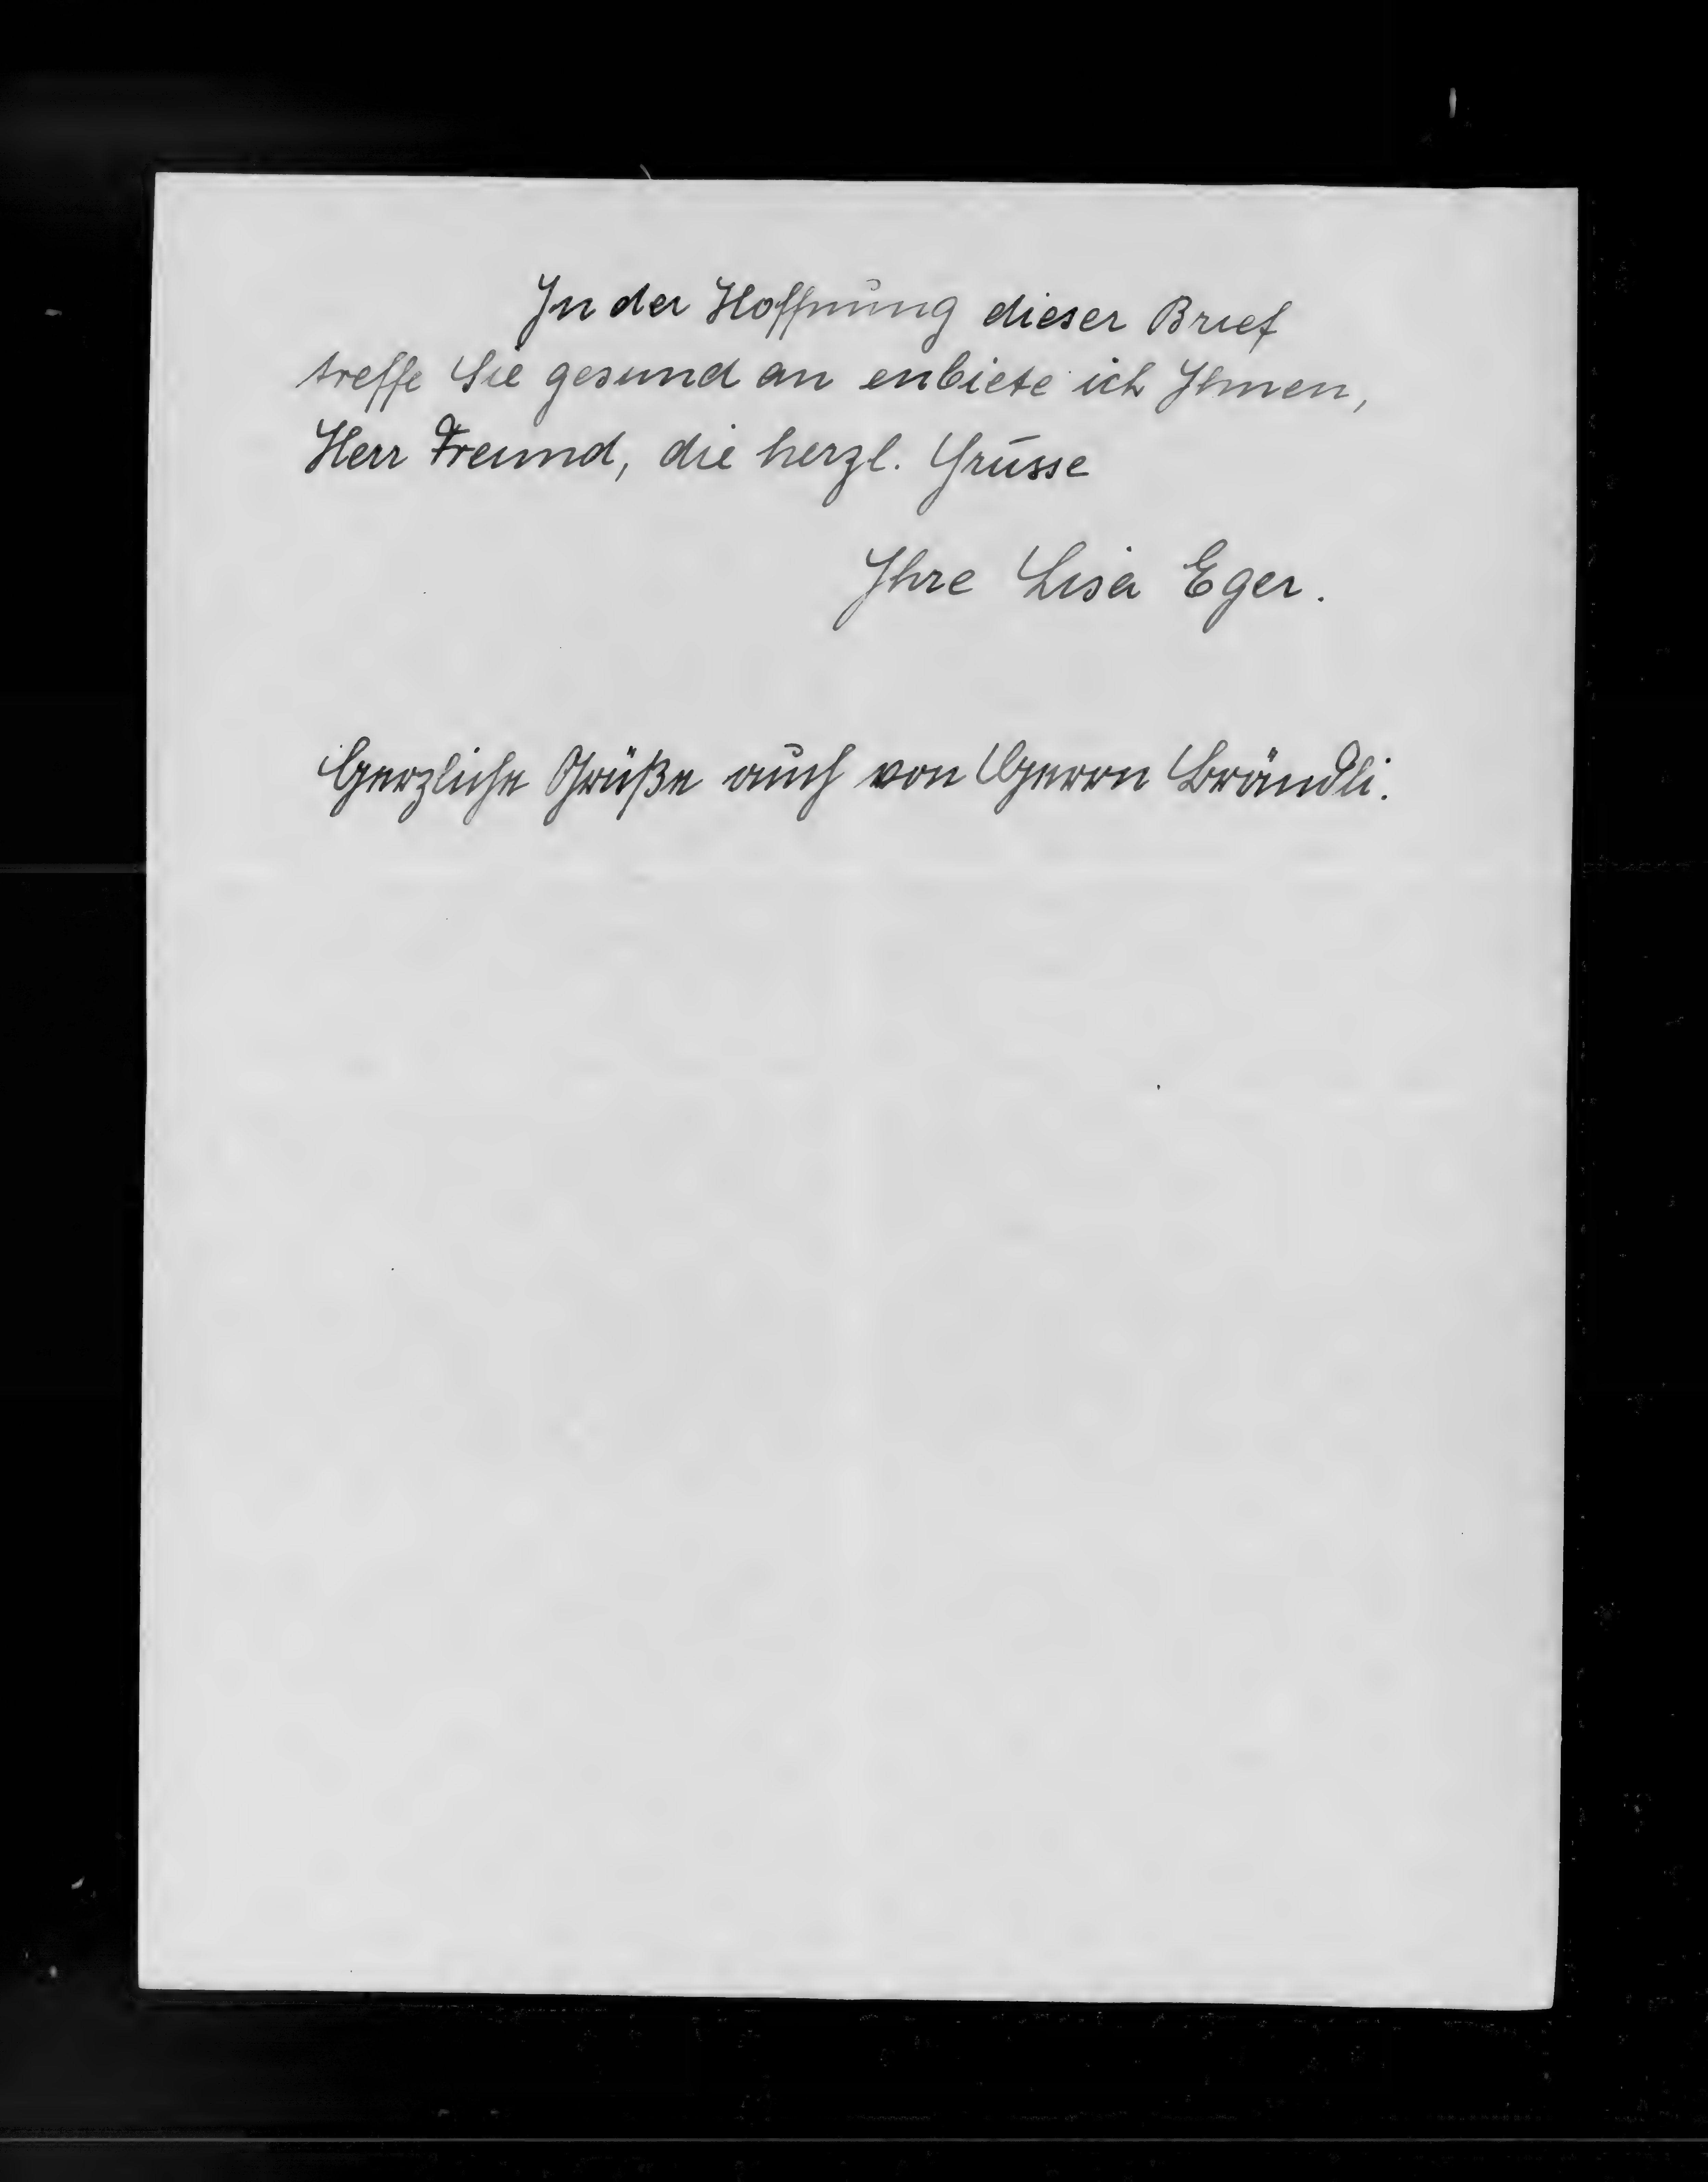 In der Hoffnung dieser Brief
treffe Sie gesund an enbiete ich Ihnen,
Herr Freund, die herzl. Grüsse
Ihre Lisa Eger.
Herzliche Grüße auch von Herrn Brändli.